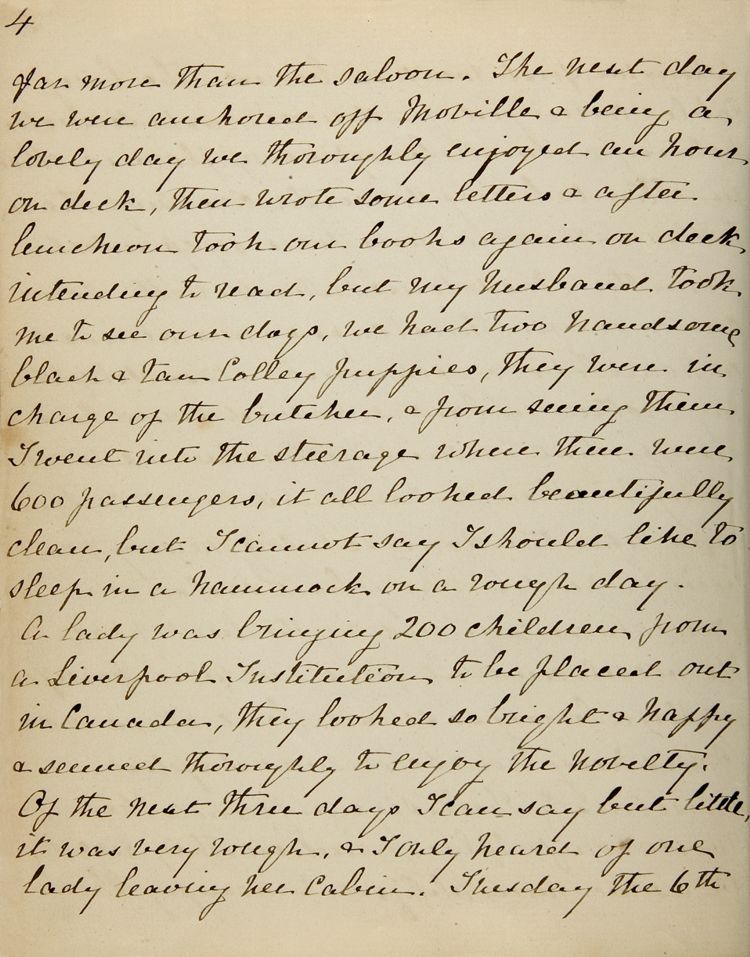 4
far more than the saloon. The next day
we were anchored off Moville & being a
lovely day we thoroughly enjoyed an hour
on deck, then wrote some letters & after
luncheon took our books again on deck
intending to read, but my husband took
me to see our dogs, we had two handsome
black & tan Colley puppies, they were in
charge of the butcher, & from seeing them
I went into the steerage where there were
600 passengers, it all looked beautifully
clean, but I cannot say I should like to
sleep in a hammock on a rough day.
A lady was bringing 200 children from
a Liverpool Institution to be placed out
in Canada, they looked so bright & happy
& seemed thoroughly to enjoy the novelty.
Of the next three days I can say but little,
it was very rough, & I only heard of one
lady leaving her cabin. Tuesday the 6th